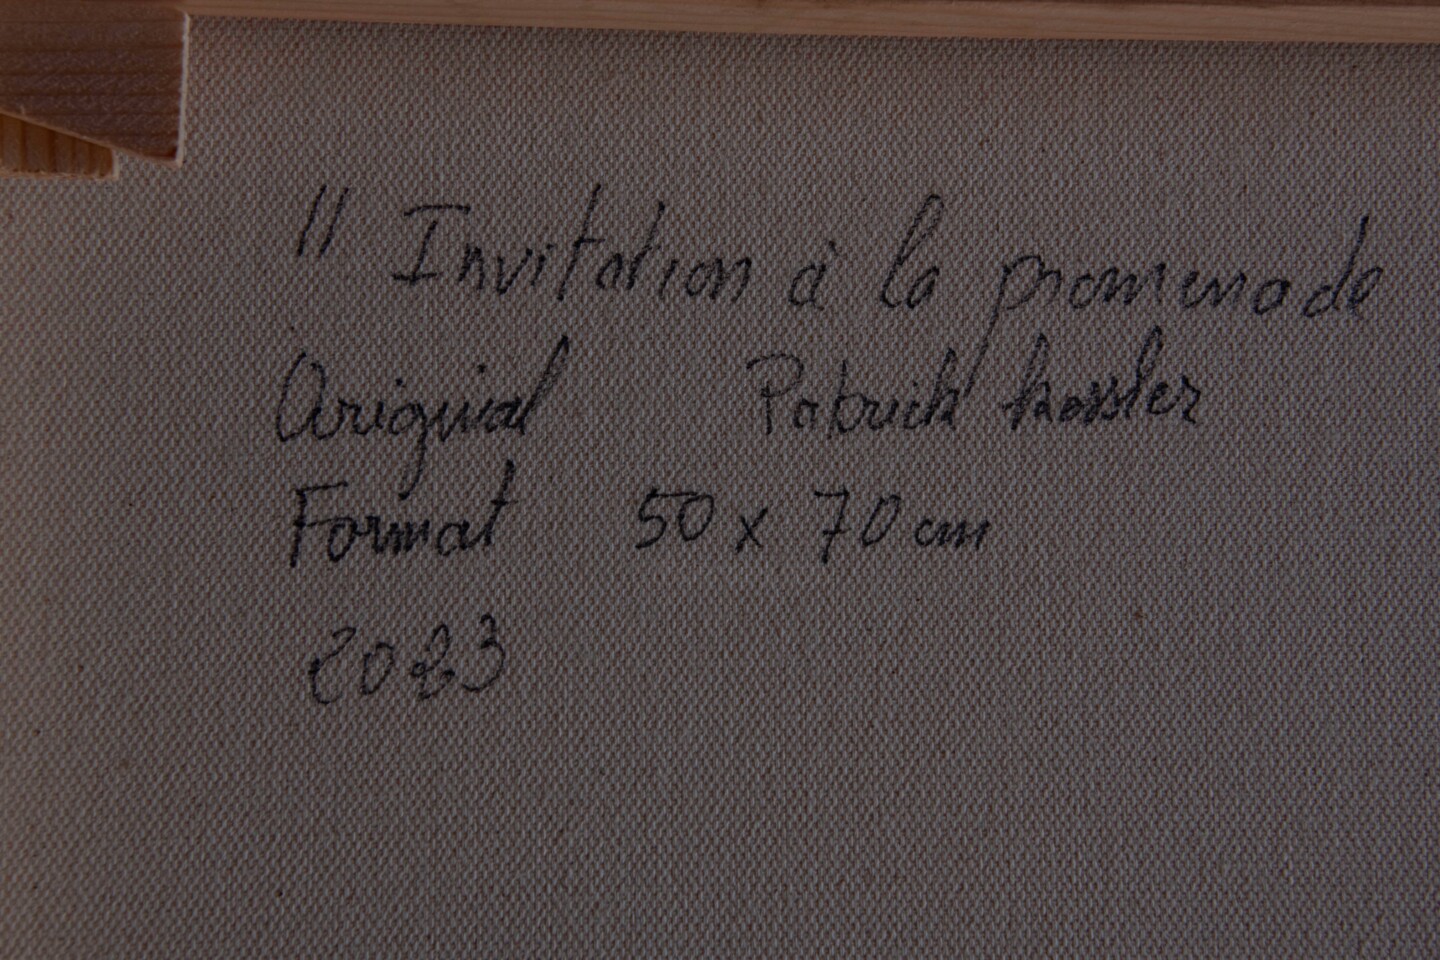 " Invitation à la promenade
Original Patrick
Format 50 x 70 cm
2023